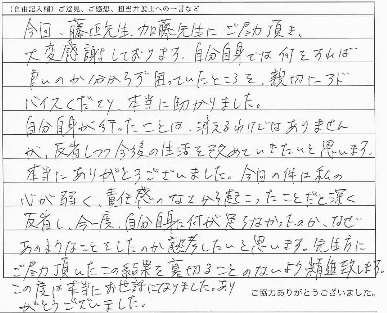 (自由記入欄) ご意見、ご感想、担当弁護士への一言など
今回、藤正先生、加藤先生にご尽力頂き、
大変感謝しております。自分自身では何をすれば
良いのか分からず困っていたところを、親切にアド
バイスくださり、本当に助かりました。
自分自身が行ったことは、消えるわけではありません
が、反省しつつ今後の生活を改めていきたいと思います。
本当にありがとうございました。今回の件は私の
心が弱く、責任感のなさから起こったことだと深く
反省し、今一度、自分自身に何が足らなかったのか、なぜ
あのようなことをしたのか熟考したいと思います。先生方に
ご尽力頂いたこの結果を裏切ることのないよう精進致します。
この度は本当にお世話になりました。あり
がとうございました。
ご協力ありがとうございました。